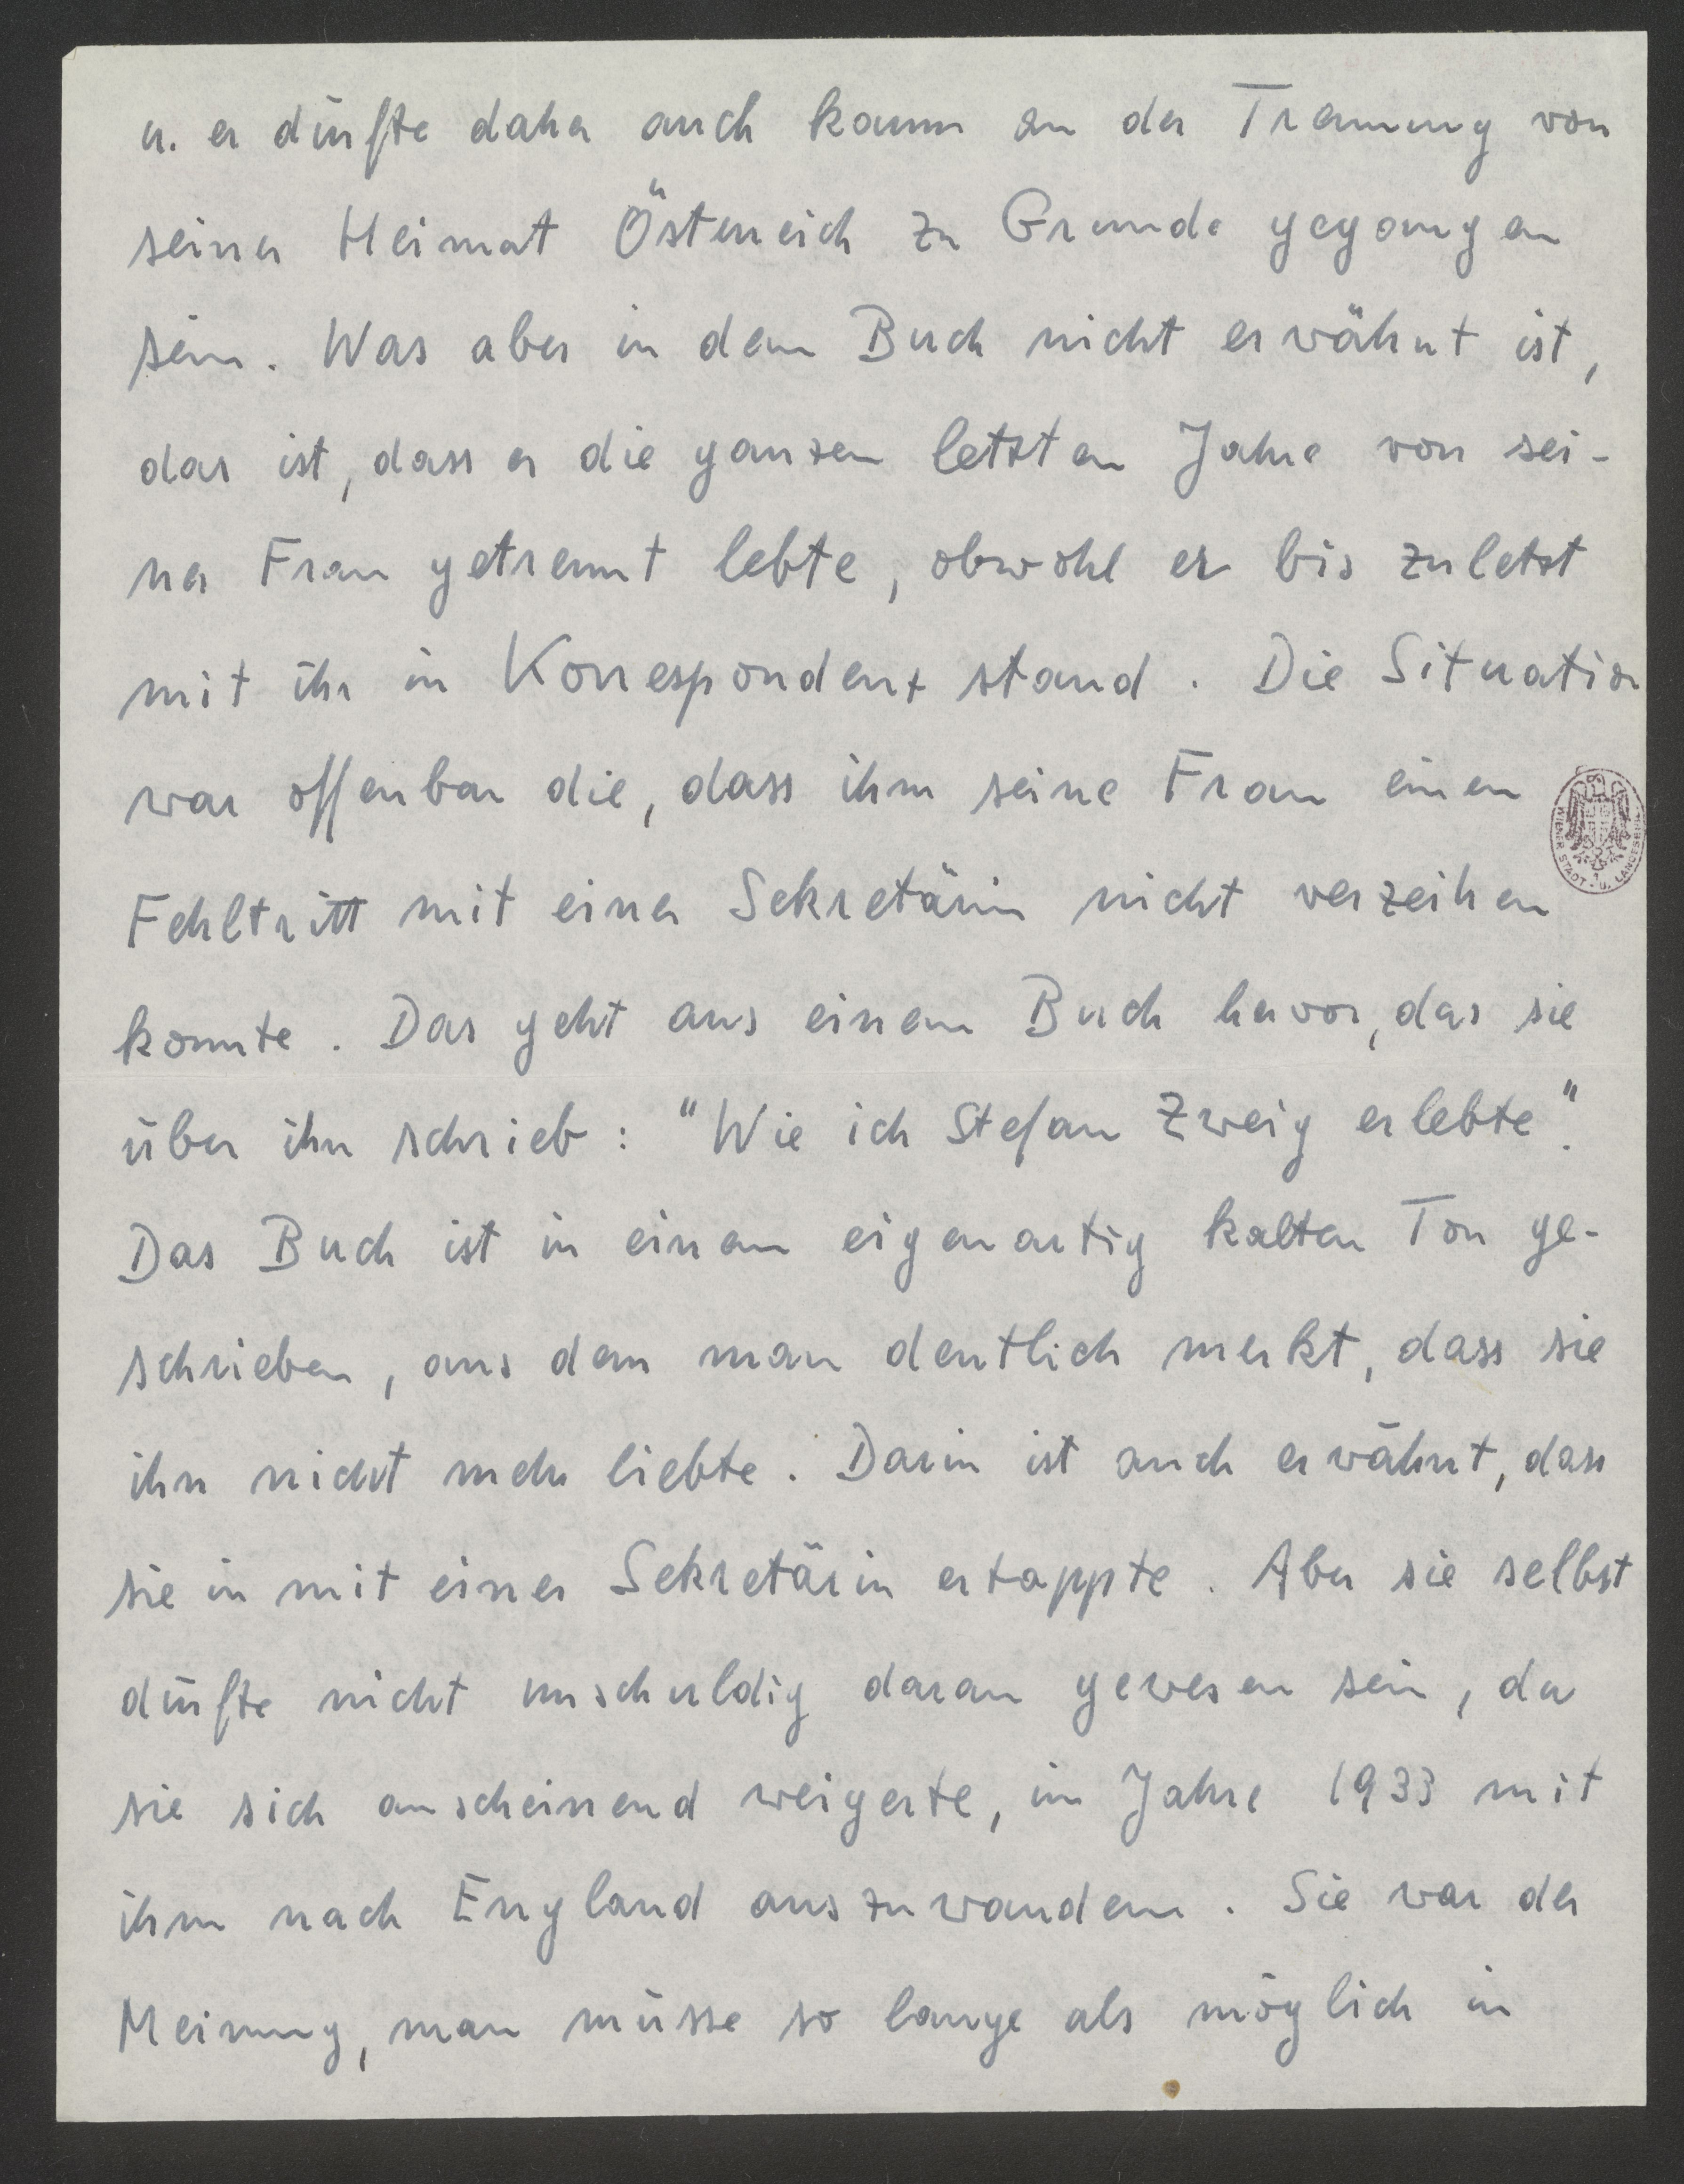 u. er dürfte daher auch kaum an der Trennung von
seiner Heimat Österreich zu Grunde gegangen
sein. Was aber in dem Buch nicht erwähnt ist,
das ist, dass er die ganzen letzten Jahre von sei-
ner Frau getrennt lebte, obwohl er bis zuletzt
mit ihr in Korrespondenz stand. Die Situation
war offenbar die, dass ihm seine Frau einen
Fehltritt mit einer Sekretärin nicht verzeihen
konnte. Das geht aus einem Buch hervor, das sie
über ihn schrieb: "Wie ich Stefan Zweig erlebte".
Das Buch ist in einem eigenartig kalten Ton ge-
schrieben, aus dem man deutlich merkt, dass sie
ihn nicht mehr liebte. Darin ist auch erwähnt, dass
sie in mit einer Sekretärin ertappte. Aber sie selbst
dürfte nicht unschuldig daran gewesen sein, da
sie sich anscheinend weigerte, im Jahre 1933 mit
ihm nach England auszuwandern. Sie war der
Meinung, man müsse so lange als möglich in
WIENER STADT- U. LANDESBIBL.